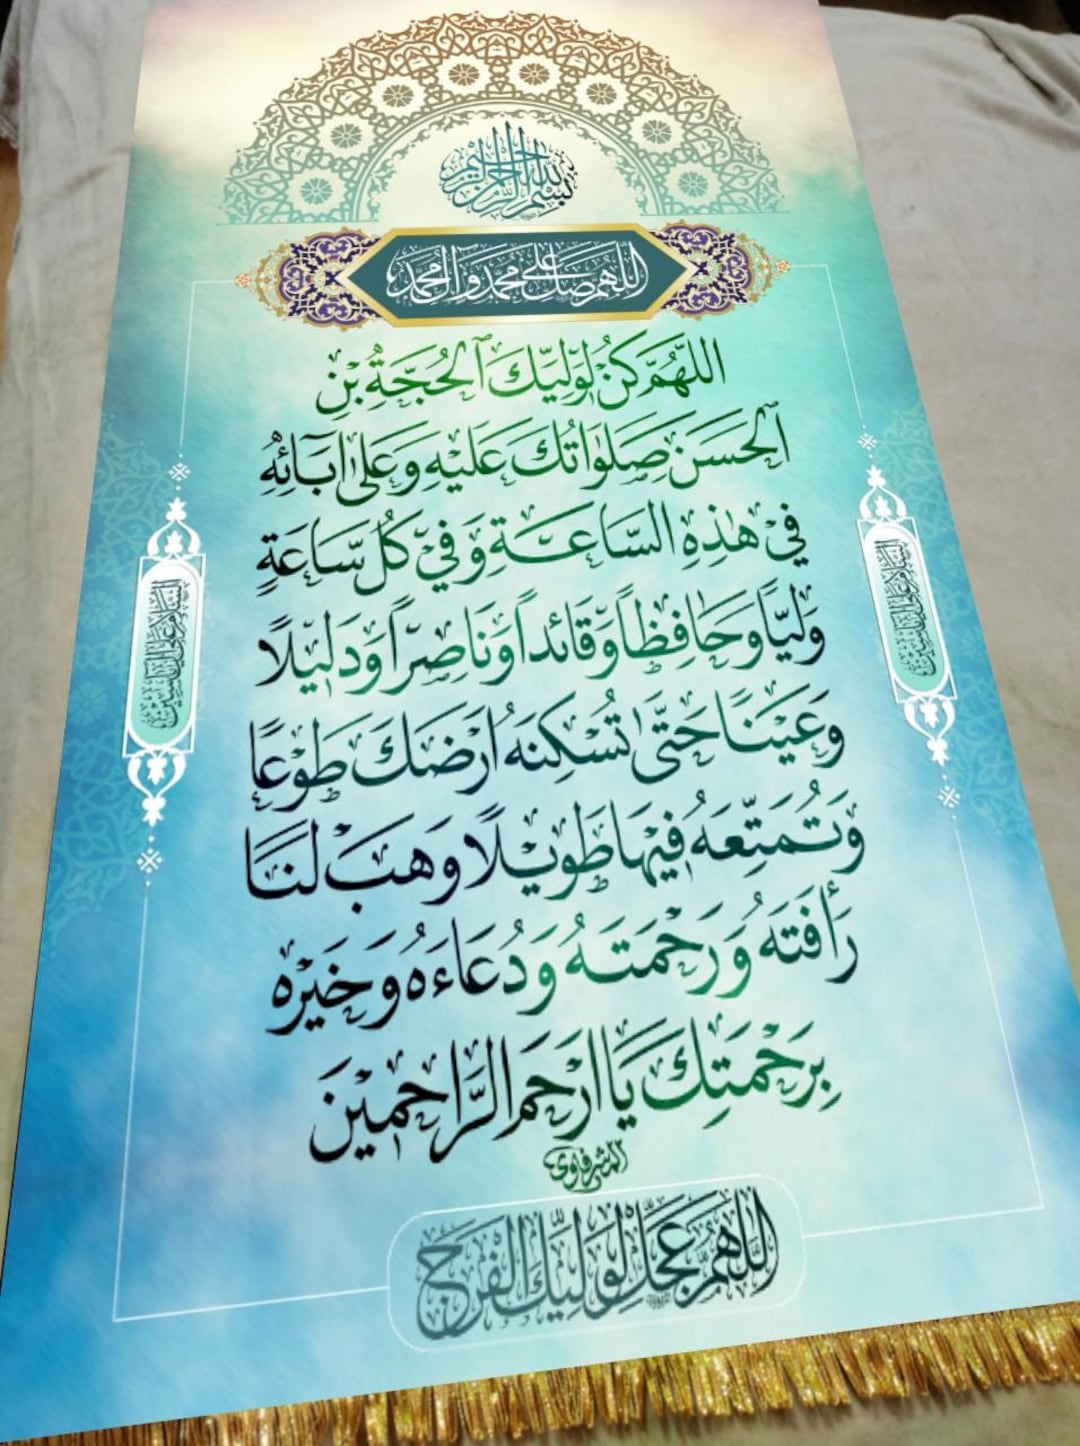 بسم الله الرحمن الرحيم
اللهم صل على محمد وآل محمد
اللَّهُمَّ كُنْ لِوَلِيِّكَ ٱلحُجَّةِ بْنِ
ٱلحَسَنِ صَلَوَاتُكَ عَلَيْهِ وَعَلَىٰ آبَائِهِ
فِي هٰذِهِ السَّاعَةِ وَفِي كُلِّ سَاعَةٍ
وَلِيًّا وَحَافِظاً وَقَائِداً وَنَاصِراً وَدَلِيلًا
وَعَيْنًا حَتَّىٰ تُسْكِنَهُ أَرْضَكَ طَوْعًا
وَتُمَتِّعَهُ فِيهَا طَوِيْلًا وَهَبْ لَنَا
رَأْفَتَهُ وَرَحْمَتَهُ وَدُعَاءَهُ وَخَيْرَه
بِرَحْمَتِكَ يَا ارْحَمَ الرَّاحِمِيْنَ
المشرفاوي
اللهم عجل لوليك الفرج
السلام على آل ياسين
السلام على آل ياسين